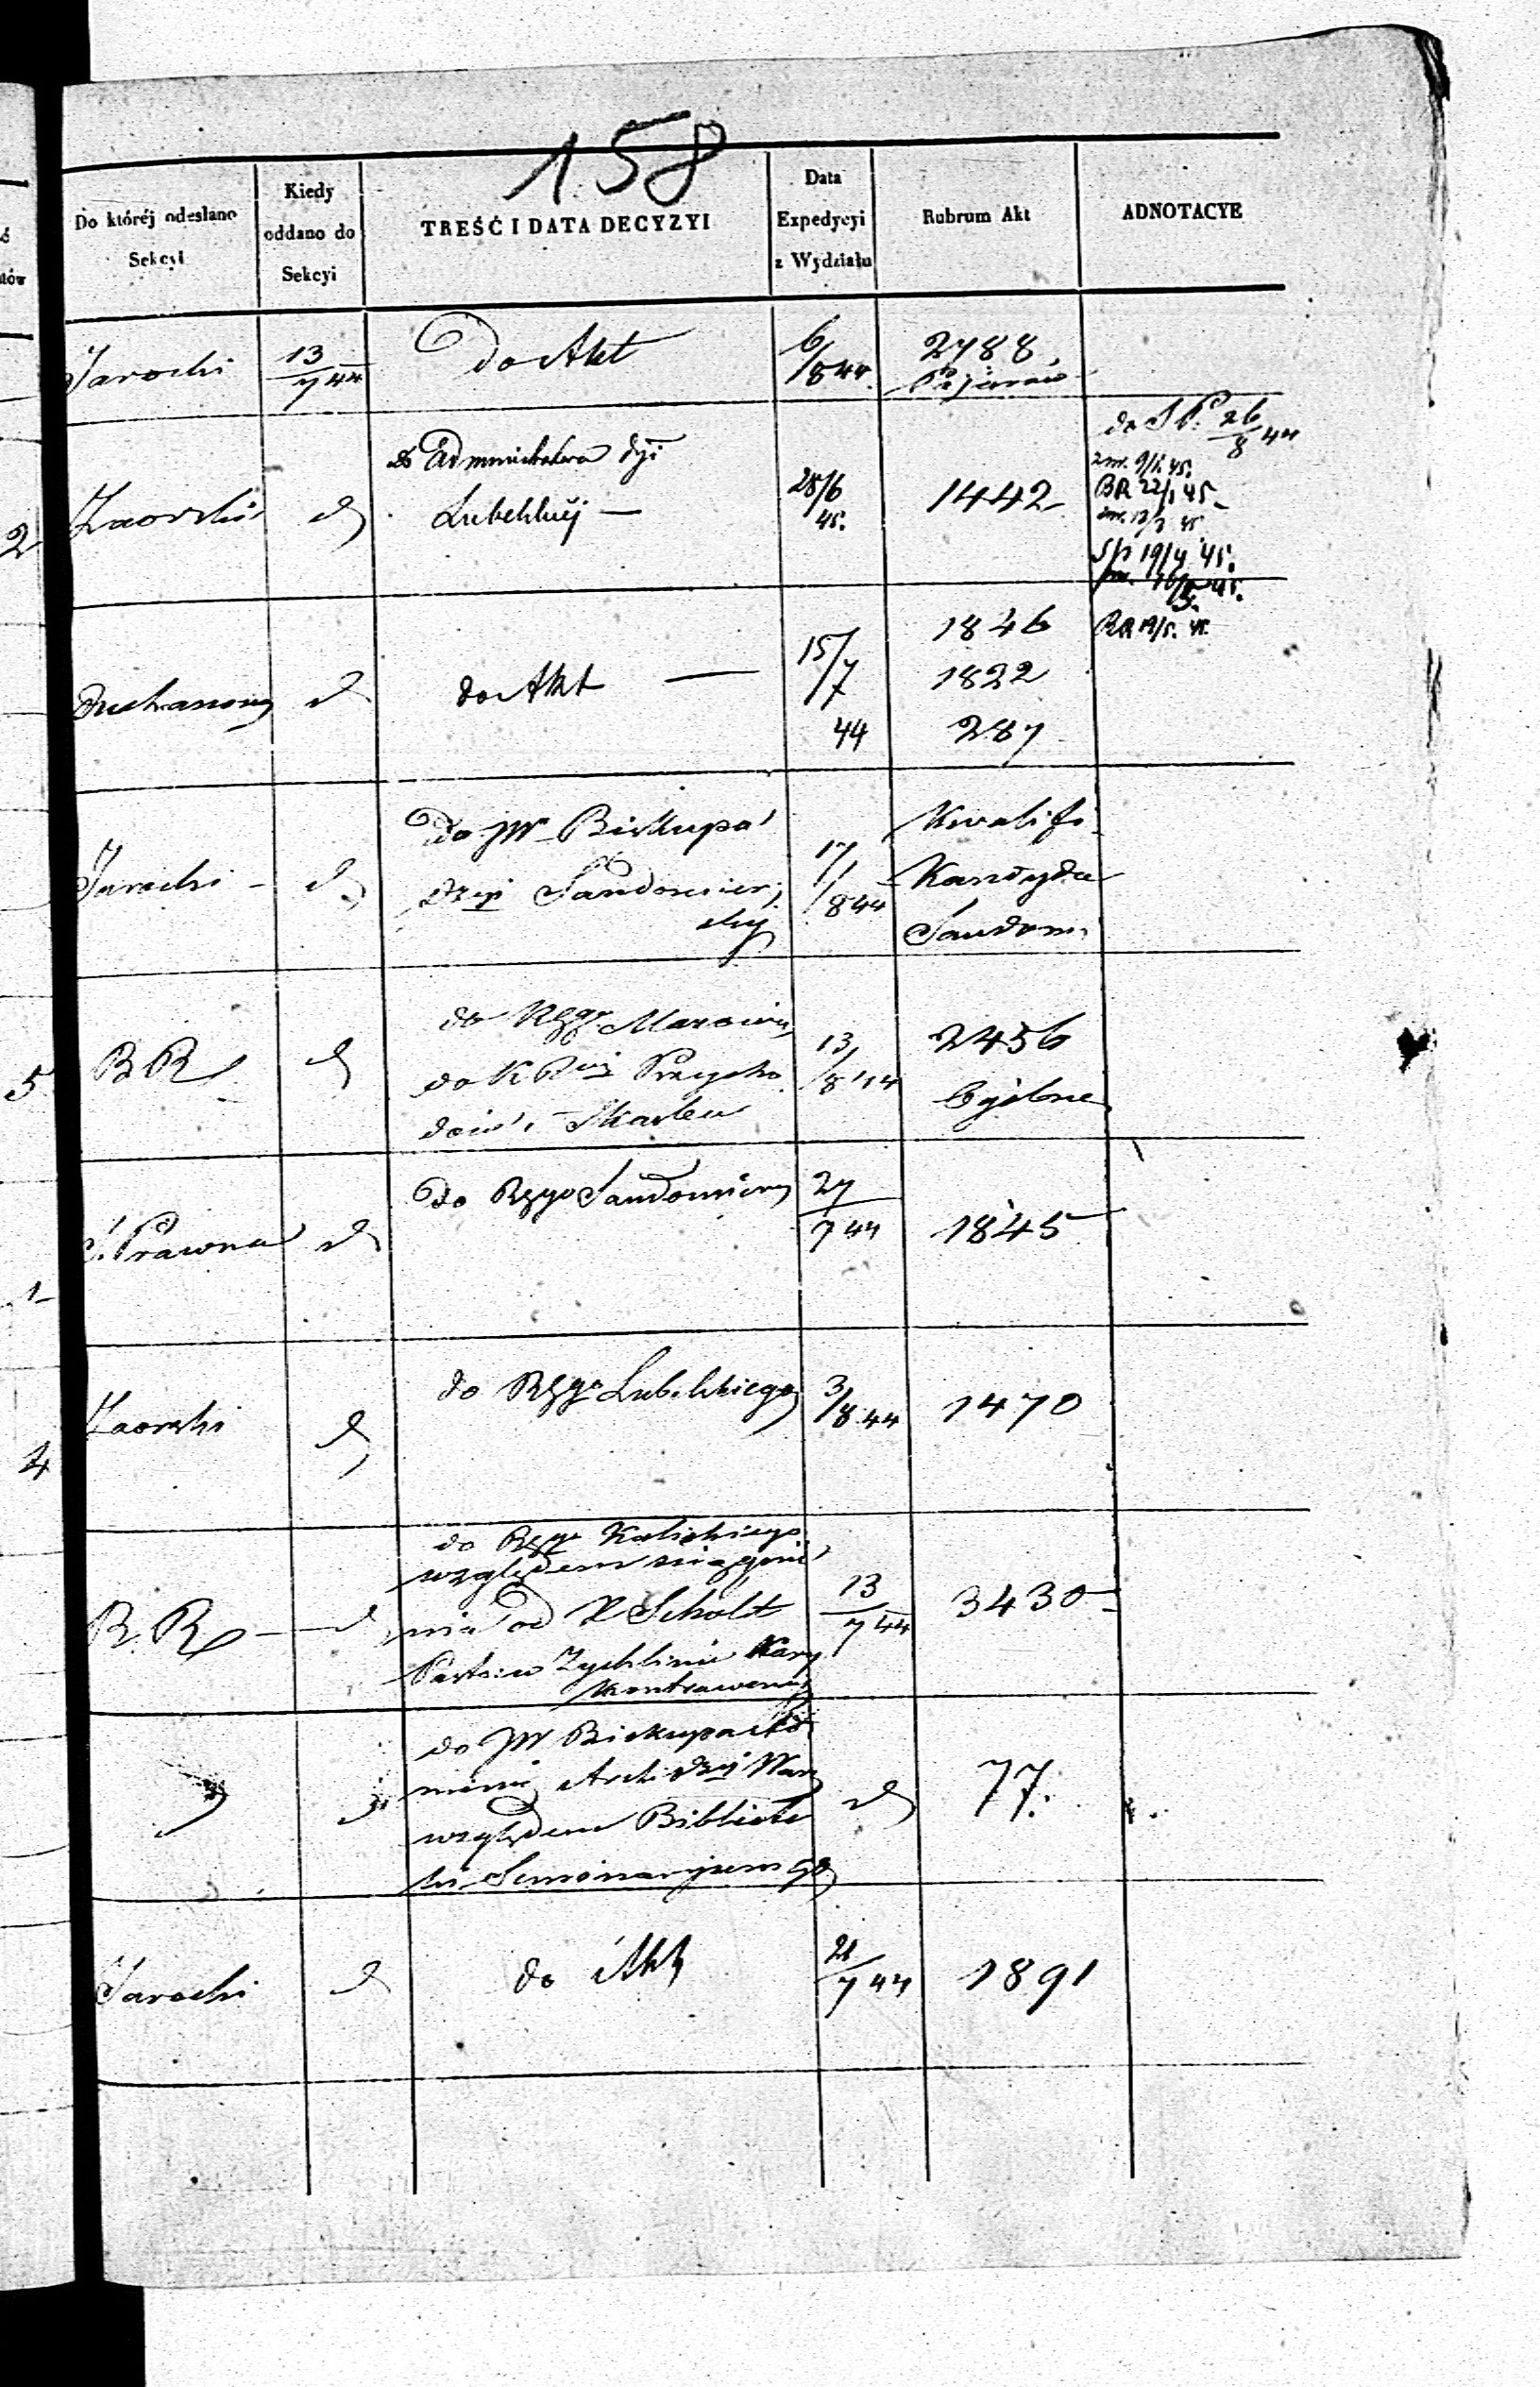 158
Do któréj odesłano
Sekcyi
Kiedy
oddano do
Sekcyi
TREŚĆ I DATA DECYZYI
Data
Expedycyi
z Wydziału
Rubrum Akt
ADNOTACYE
Jarocki
13/7 44
Do Akt
6/8 44
2788
2
Zaorski
d
Administratora Dyi
Lubelskiéj —
28/6
45.
1442
do S P. 26/8 44
BR 22/1 45
Sp 19/4 45.
d
do Akt —
15/7
44
1846
1822
287
Jarocki -
d
Do JW Biskupa
Dyi Sandomier
skiej
17/8 44
Kwalifi
Kandyda
Sandom.
5
BR
d
do Rzgo Mazowie
do K R Przycho
dów i Skarbu
13/8 44
2456
Ogólne
S. Prawna
d
Do Rzgo Sandomiers
27/7 44
1845
1
4
Zaorski
d
do Rzgo Lubelskiego
3/8 44
1470
B. R. —
d
do Rzgo Kaliskiego
względem ściągnie
nia od X Scholt
Past: w Zychlinie Kary
Kontrawen
13/7 44
3430
d
do JW Biskupa Ad
minis Archi Dyi Warsz
względem Bibliote
ki Seminaryjnego
d
77.
Jarocki
d
do Akt
21/7 44
1891